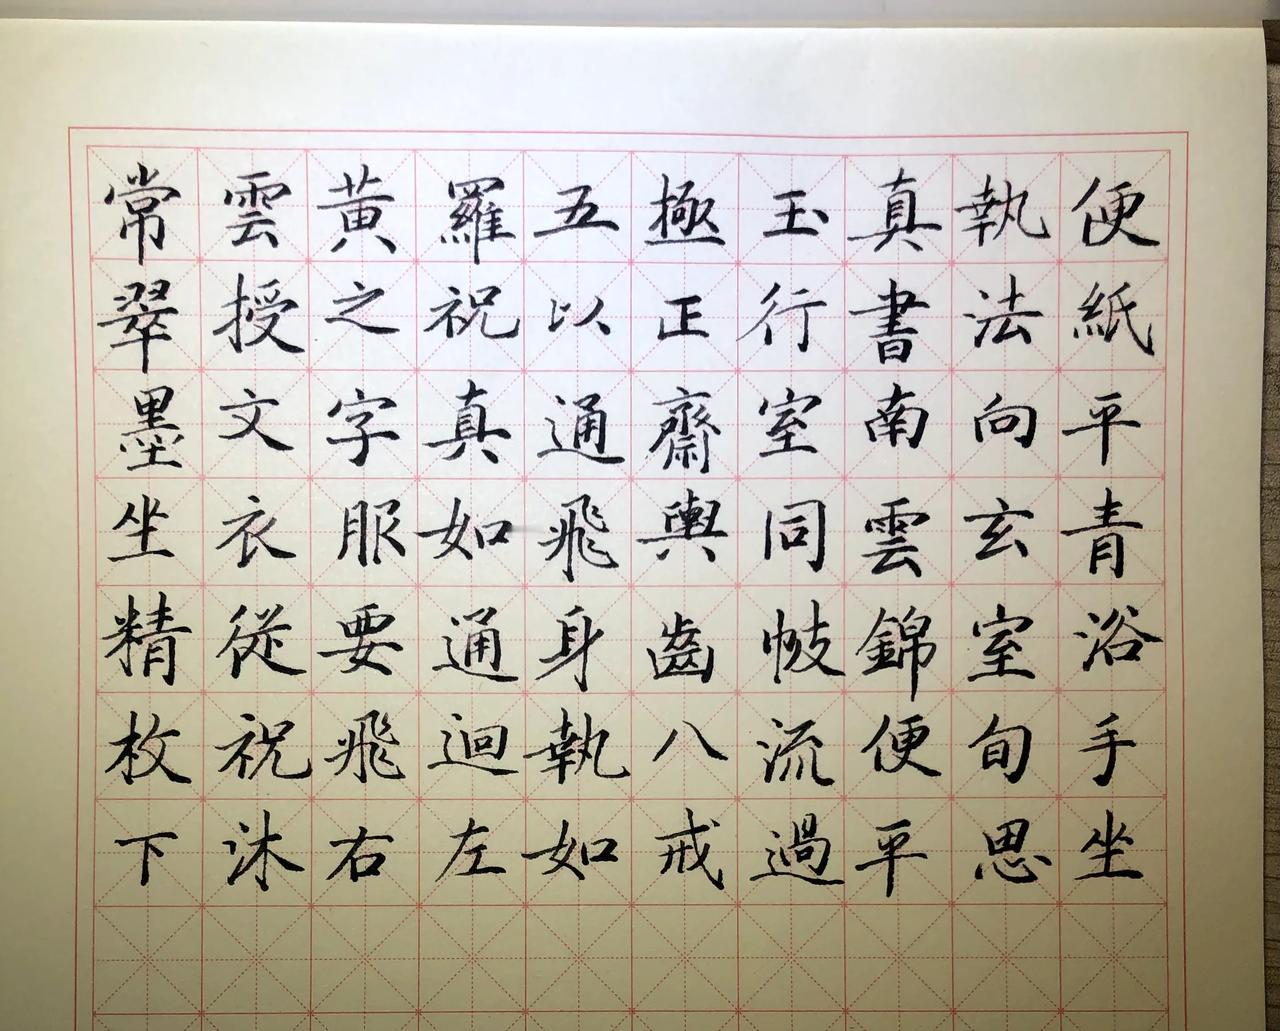 便紙平青浴手坐
執法向玄室旬思
真書南雲錦便平
玉行室同帔流過
極正齋輿齒八戒
五以通飛身執如
羅祝真如通迴左
黃之字服要飛右
雲授文衣從祝沐
常翠墨坐精枚下